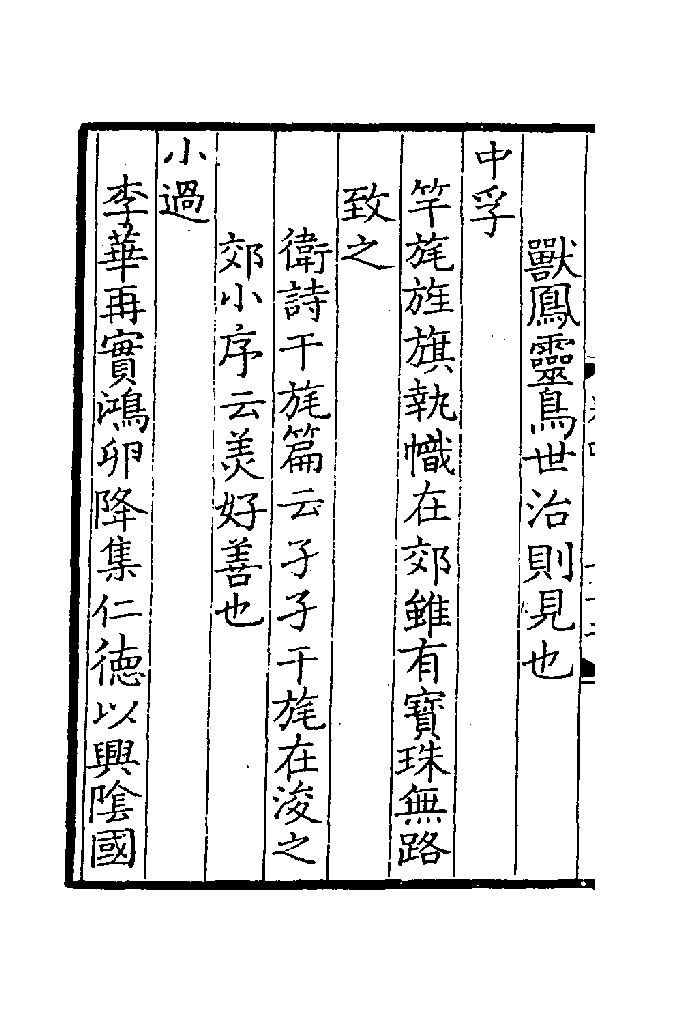 獸鳳靈鳥世治則見也
中孚
竿旄旌旗執幟在郊雖有寶珠無路
致之
衛詩干旄篇云孑孑干旄在浚之
郊小序云美好善也
小過
李華再實鴻卵降集仁德以興陰國